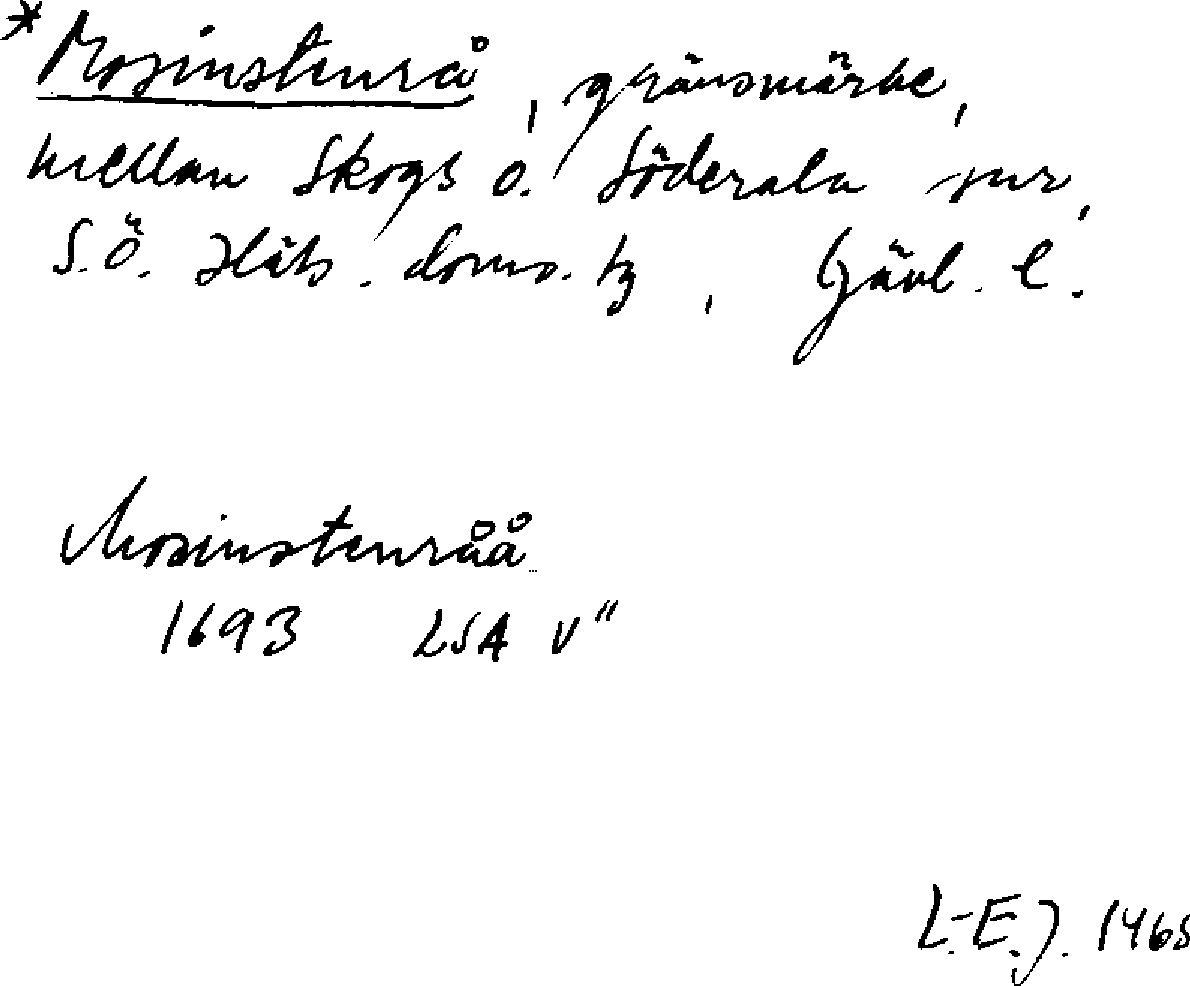 *Mosinstenrå, gränsmärke,
mellan Skogs o. Söderala snr,
S.Ö. Häls. doms. tg, Gävl. l.
Mosinstenråå
1693 LSA V"
L.-E.J. 1965